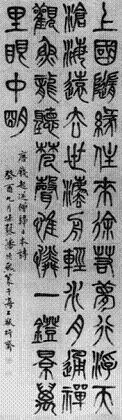 上國隨緣住來途若夢行浮天
滄海遠去世灋舟輕水月通禪
觀魚龍聽梵聲惟憐一鐙景萬
里眼中明
唐錢起送僧歸日本詩
癸酉九月